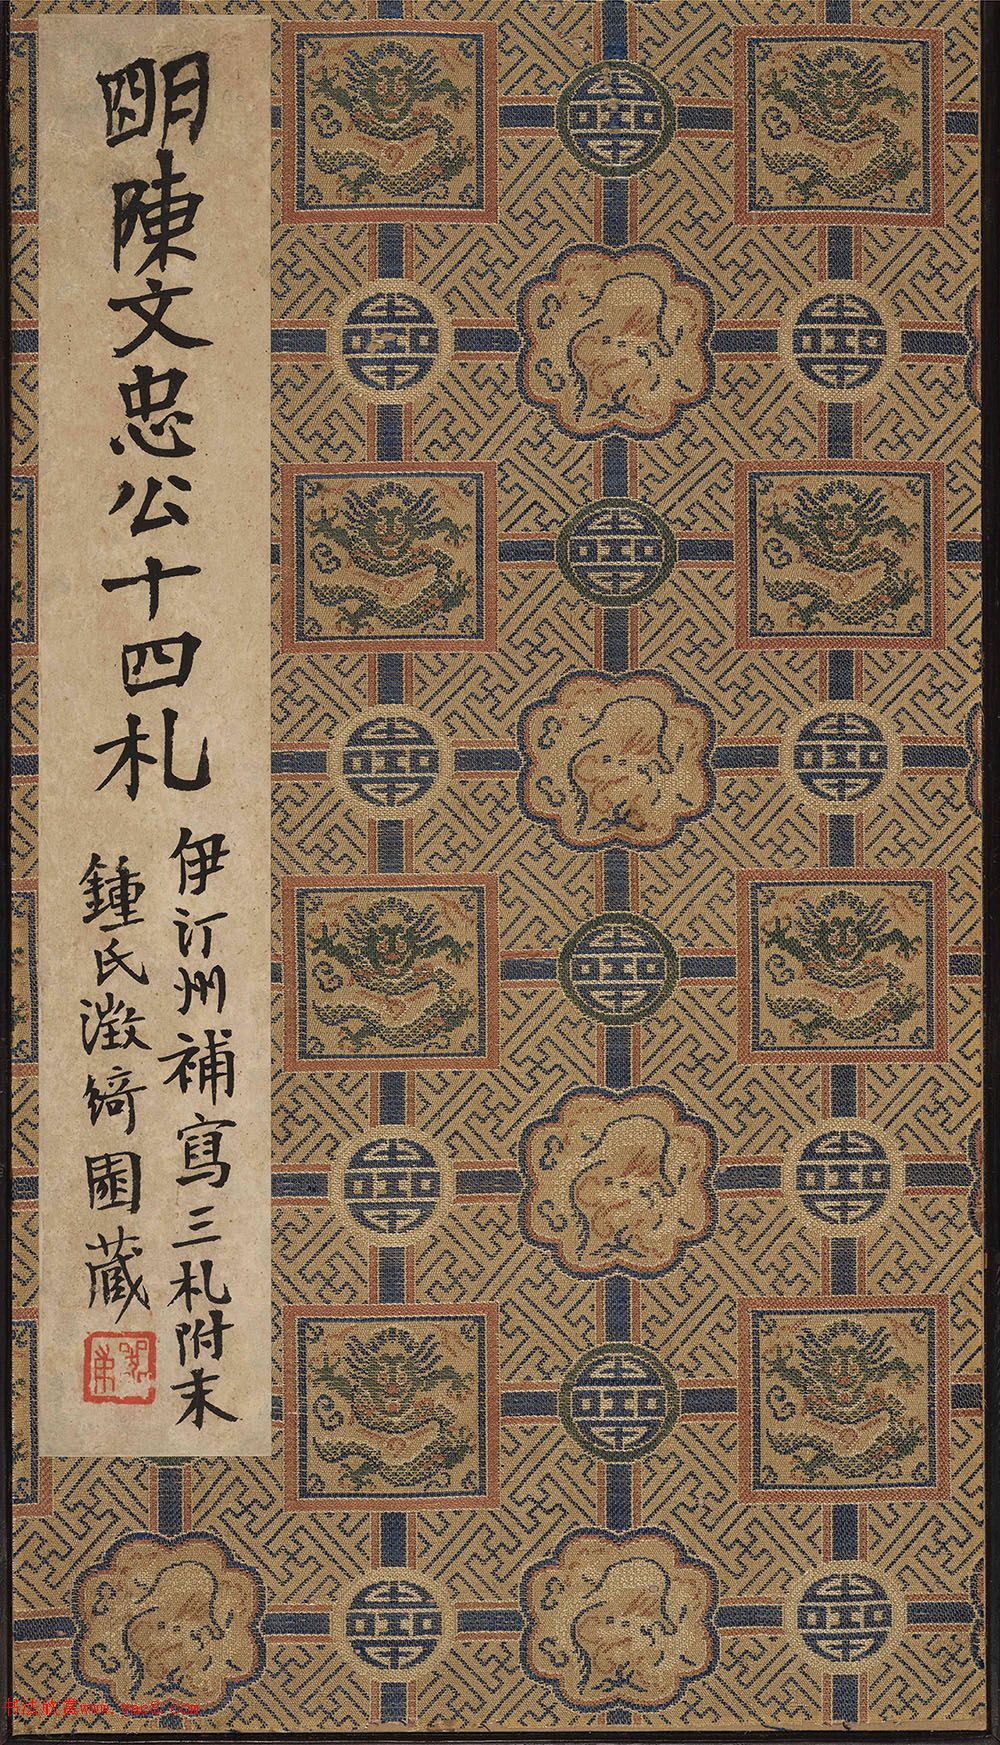 明陳文忠公十四札
伊汀州補寫三札附末
鍾氏澂
藏
书法欣赏www.yac8.com